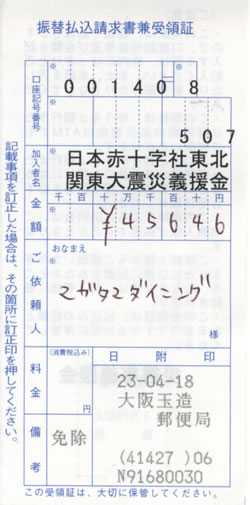 振替払込請求書兼受領証
口座記号番号
001408
507
加入者名
日本赤十字社東北
関東大震災義援金
金額
千百十万千百十円
¥45646
ご依頼人
おなまえ
マガタマダイニング
様
料金
(消費税込み)
円
日附印
23-04-18
大阪玉造
郵便局
(41427 )06
N91680030
備考
免除
記載事項を訂正した場合は、その箇所に訂正印を押してください。
この受領証は、大切に保管してください。